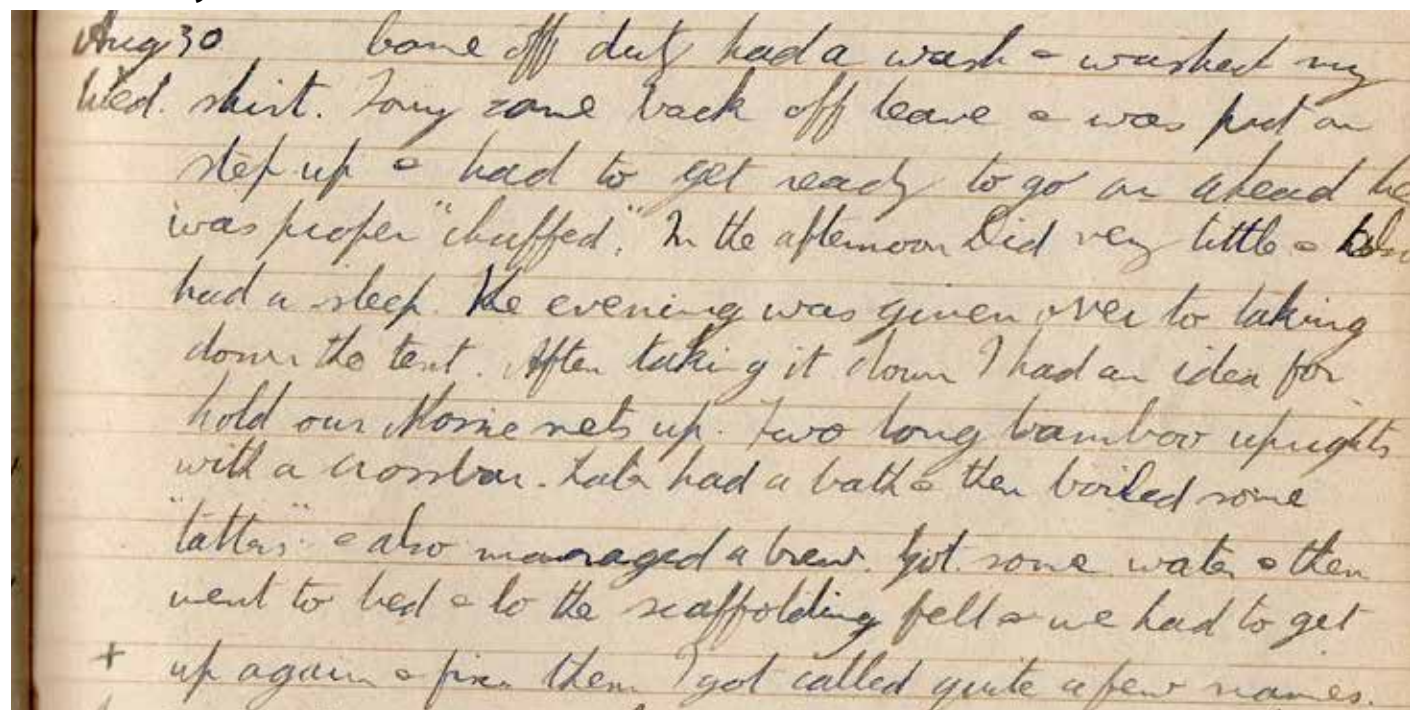 Aug 30 Came off duty had a wash & washed my
Wed. shirt. Tony came back off leave & was put on
step up & had to get ready to go on ahead he
was proper "chuffed". In the afternoon Did very little &
had a sleep. The evening was given over to taking
down the tent. After taking it down I had an idea for
hold our Mossie nets up. Two long bamboo uprights
with a crossbar. Later had a bath & then boiled some
"tatters" & also managed a brew. Got some water & then
went to bed & lo the scaffolding fell & we had to get
+ up again & fix them I got called quite a few names.